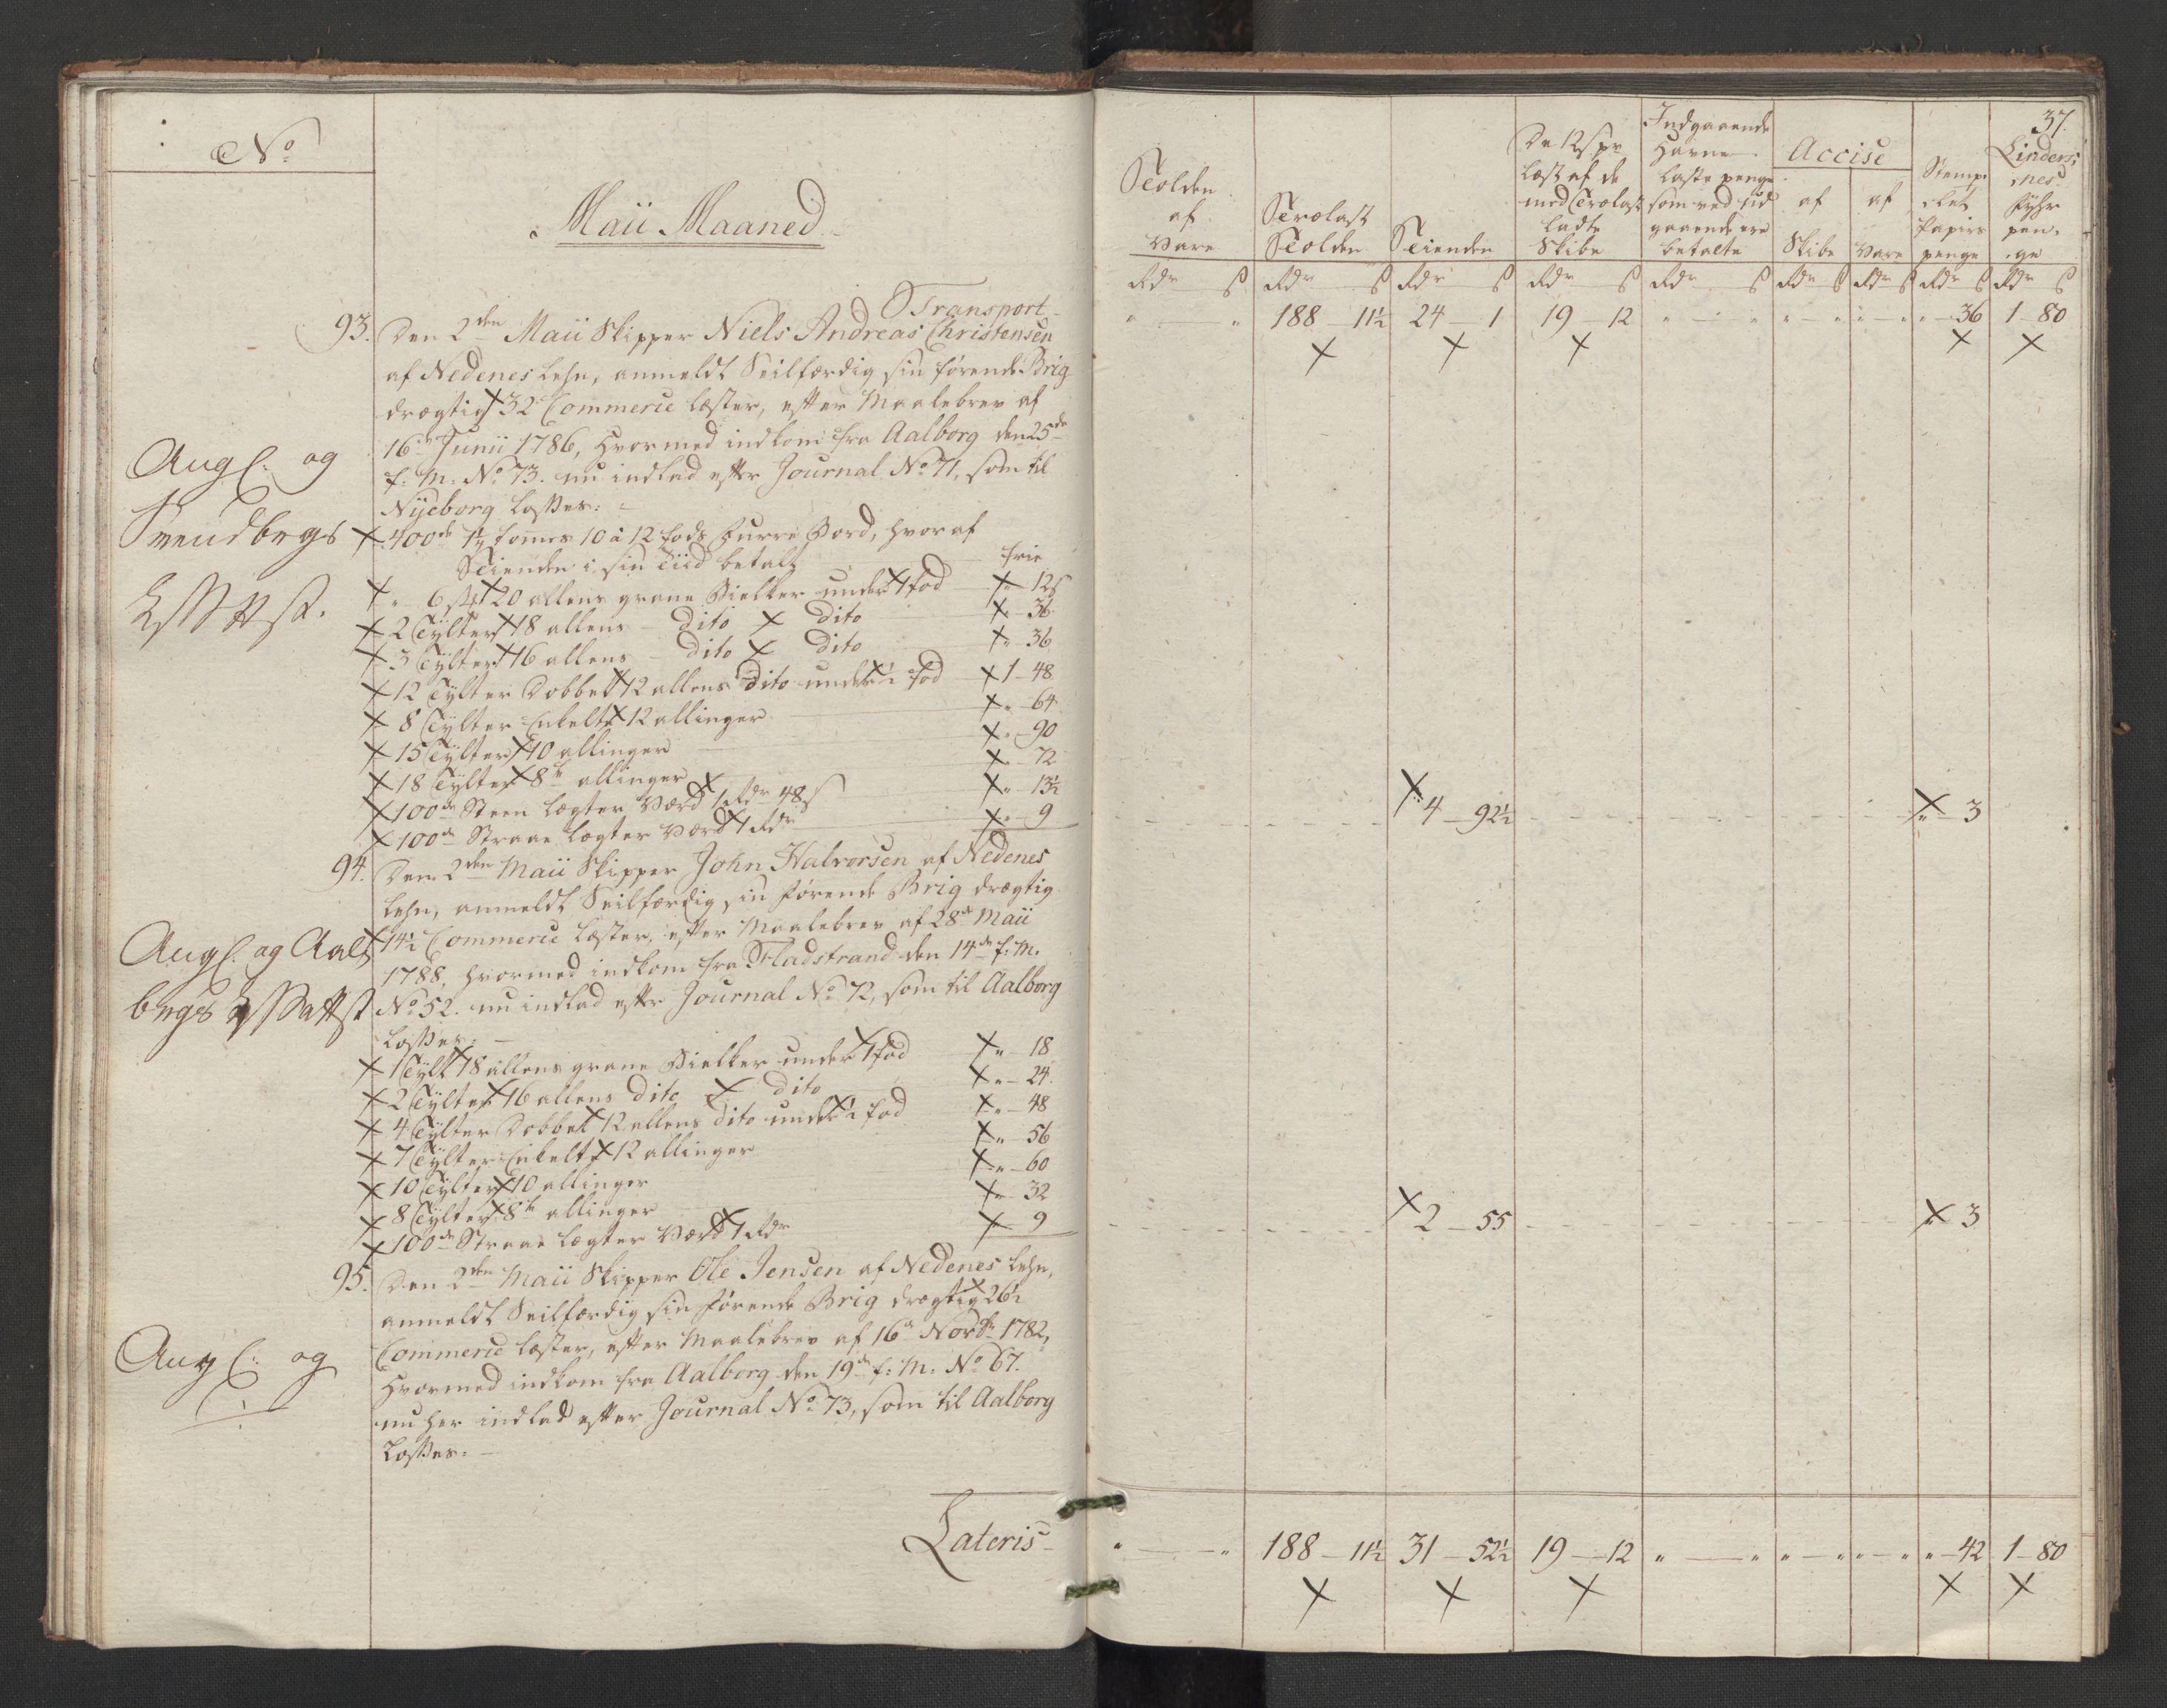 No
Maii Maaned
Transport
93. Den 2den Maii Skipper Niels Andreas Christensen
af Nedenes Lehn, anmeldt Seilfærdig sin førende Brig
drægtig 32 Commerce Læster, efter Maalebrev af
16de Junii 1786, hvormed indkom fra Aalborg den 25de
f: M: No 73. nu indlad efter Journal No 71, som til
Nyeborg Losses:
Angl: og
Svendborgs
400de 1½ tommes 10 à 12 fods Furre Bord, hvoraf
Tienden i sin Tiid betalt frie
" 6 st 20 allens grane Bielker under 1 fod " 12 s
2 Tylter 18 allens dito dito " 36
3 Tylter 16 allens dito dito " 36
12 Tylter Dobbelt 12 allens dito under ½ fod 1 - 48
8 Tylter Enkelt 12 allinger " 64
15 Tylter 10 allinger " 90
18 Tylter 8te allinger " 72
100de Steen Lægter Værd 1 Rdr 48 s " 13½
100de Straae Lægter Værd 1 Rdr " 9
94. Den 2den Maii Skipper John Halvorsen af Nedenes
Lehn, anmeldt Seilfærdig sin førende Brig drægtig
14½ Commerce Læster, efter Maalebrev af 28de Maii
1788, hvormed indkom fra Fladstrand den 14de f: M.
No 52. nu indlad efter Journal No 72, som til Aalborg
Losses:
Angl: og Aal-
borgs
1 Tylt 18 allens grane Bielker under 1 fod " 18
2 Tylter 16 allens dito dito " 24
4 Tylter Dobbelt 12 allens dito under ½ fod " 48
7 Tylter Enkelt 12 allinger " 56
10 Tylter 10 allinger " 60
8 Tylter 8te allinger " 32
100de Straae Lægter Værd 1 Rdr " 9
95. Den 2den Maii Skipper Ole Jensen af Nedenes Lehn,
anmeldt Seilfærdig sin førende Brig drægtig 26½
Commerce Læster, efter Maalebrev af 16de Novbr 1782,
hvormed indkom fra Aalborg den 19de f: M: No 67.
nu her indlad efter Journal No 73, som til Aalborg
Losses:
Angl: og
Lateris
37.
Tolden af Vare
Trælast Tolden
Tienden
De 12 s pr Læst af de med Trælast ladte Skibe
Indgaaende Havne Læste penge som ved Udgaaende ere betalte
Accise
af Skibe
af Vare
Stemplet Papirs penge
Lindesnes Fyhr penge
Rdr s Rdr s Rdr s Rdr s Rdr s Rdr s Rdr s Rdr s Rdr s
" " 188 - 11½ 24 - 1 19 - 12 " " " " " " " - 36 1 - 80
4 - 92½ " 3
2 - 55 " 3
" " 188 - 11½ 31 - 52½ 19 - 12 " " " " " " " - 42 1 - 80